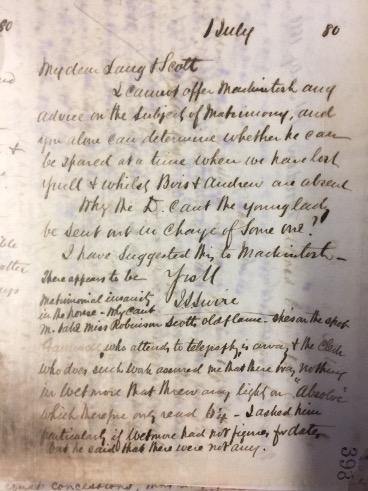 1 July 80
My dear Lang & Scott
I cannot offer Mackintosh any
advice on the subject of Matrimony, and
you alone can determine whether he can
be spared at a time when we have lost
& whilst Bois & Andrew are absent
Why the D. can't the young lady
be sent out in charge of some one?
I have suggested this to Mackintosh —
There appears to be
Matrimonial insanity
in the house - Why can't
M. take Miss Robinson Scott's old flame - she's on the spot
who attends to telegraphy, is away, & the Clerk
who does such work assured me that there was nothing
in Wetmore that threw any light on "Absolve"
which therefore only read
- I asked him
particularly if Wetmore had not figures, for dates
but he said that there were not any.
393